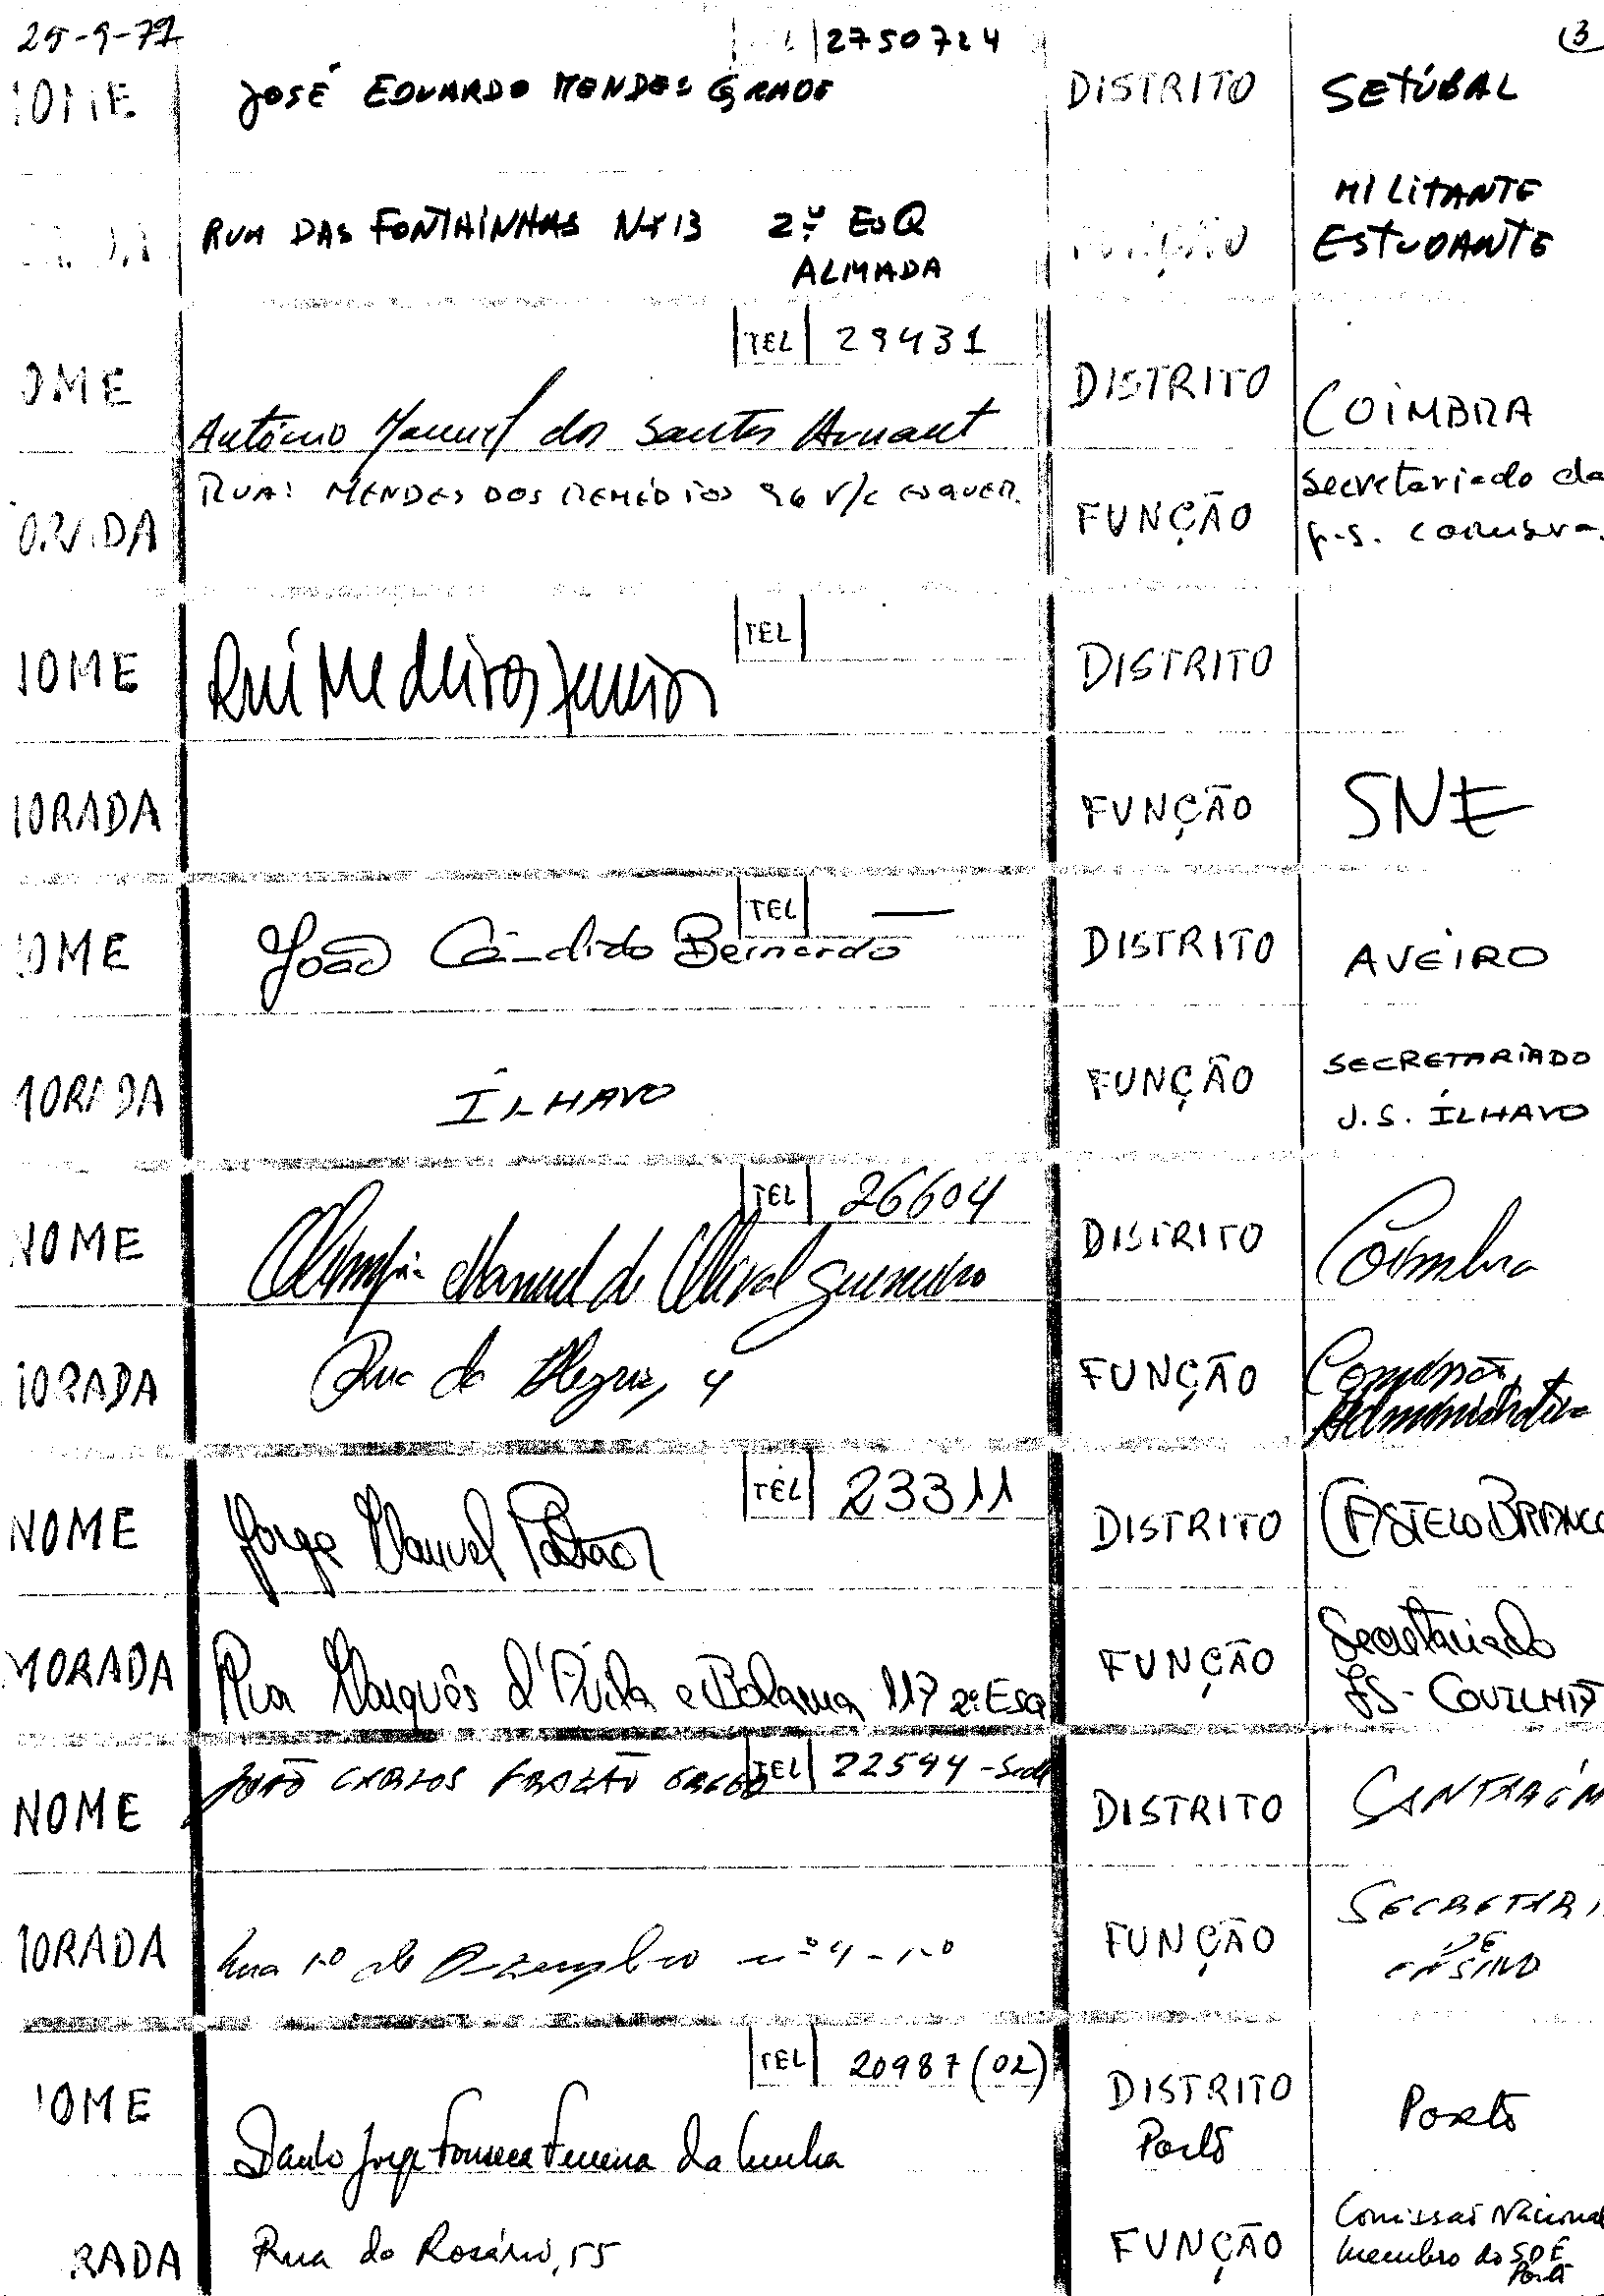 25-9-77
2750724
3
NOME JOSÉ EDUARDO MENDES GRADE DISTRITO SETÚBAL
RUA DAS FONTAINHAS Nº 13 2º ESQ FUNÇÃO MILITANTE
ALMADA ESTUDANTE
TEL 29431
OME António Manuel dos Santos Arnaut DISTRITO COIMBRA
ORADA RUA: MENDES DOS REMÉDIOS 96 r/c ESQUER. FUNÇÃO Secretariado da
TEL
IOME Rui Medeiros DISTRITO
IORADA FUNÇÃO SNE
TEL —
OME João Cândido Bernardo DISTRITO AVEIRO
MORADA ÍLHAVO FUNÇÃO SECRETARIADO
J.S. ÍLHAVO
TEL 26604
NOME Manuel de Olival DISTRITO Coimbra
MORADA Rua da Alegria, 4 FUNÇÃO Comissão
Administrativa
TEL 23311
NOME Jorge Manuel DISTRITO CASTELO BRANCO
MORADA Rua Marquês d'Ávila e Bolama 117 2º Esq FUNÇÃO Secretariado
JS - COVILHÃ
TEL 22594 - Sede
NOME JOÃO CARLOS FRAZÃO DISTRITO SANTARÉM
MORADA Rua 1º de Dezembro nº 4 - 1º FUNÇÃO SECRETARI
DE
ENSINO
TEL 20987 (02)
NOME Paulo Jorge Fonseca Ferreira da Cunha DISTRITO Porto
Porto
RADA Rua do Rosário, 55 FUNÇÃO Comissão Nacional
Membro do SDE
Porto